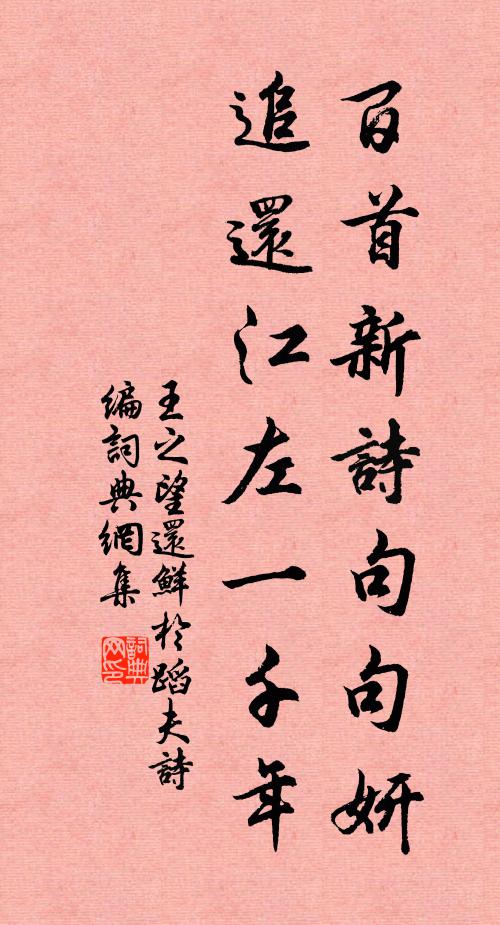 百首新詩句句妍
追還江左一千年
王之望還鮮於蹈夫詩
編詞典網集
詞典
网印